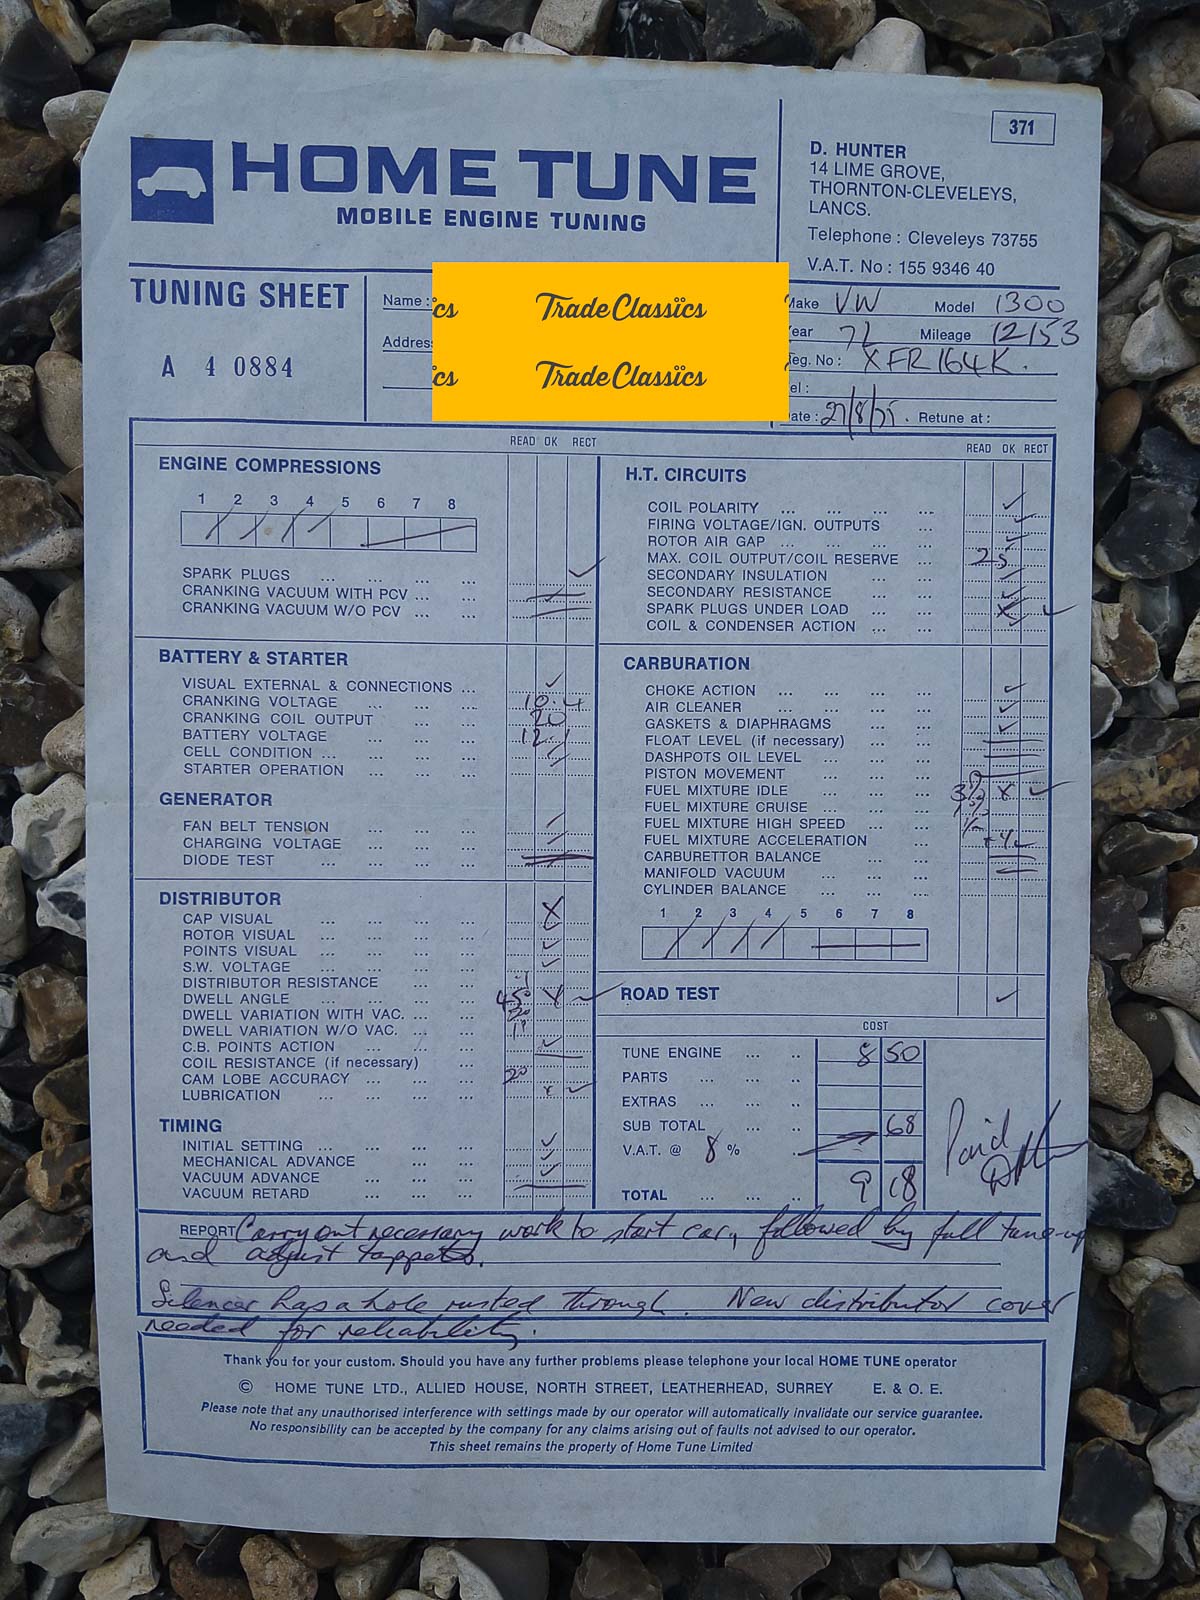 371
HOME TUNE
MOBILE ENGINE TUNING
D. HUNTER
14 LIME GROVE,
THORNTON-CLEVELEYS,
LANCS.
Telephone : Cleveleys 73755
V.A.T. No : 155 9346 40
TUNING SHEET
A 4 0884
Name :
Address
cs Trade Classics
cs Trade Classics
Make VW Model 1300
Year 72 Mileage 12153
Reg. No : XFR 164K.
Tel :
Date : 27/8/75. Retune at :
READ OK RECT
ENGINE COMPRESSIONS
1 2 3 4 5 6 7 8
SPARK PLUGS ... ... ... ... ✓
CRANKING VACUUM WITH PCV ... ...
CRANKING VACUUM W/O PCV ... ...
BATTERY & STARTER
VISUAL EXTERNAL & CONNECTIONS ... ✓
CRANKING VOLTAGE ... ... ... 10.4
CRANKING COIL OUTPUT ... ... 20
BATTERY VOLTAGE ... ... ... 12.1
CELL CONDITION ... ... ... ...
STARTER OPERATION ... ... ...
GENERATOR
FAN BELT TENSION ... ... ...
CHARGING VOLTAGE ... ... ...
DIODE TEST ... ... ... ...
DISTRIBUTOR
CAP VISUAL ... ... ... ... X
ROTOR VISUAL ... ... ... ... ✓
POINTS VISUAL ... ... ... ... ✓
S.W. VOLTAGE ... ... ... ... ✓
DISTRIBUTOR RESISTANCE ... ...
DWELL ANGLE ... ... ... ... 45° X ✓
DWELL VARIATION WITH VAC. ... ...
DWELL VARIATION W/O VAC. ... ... 1°
C.B. POINTS ACTION ... ... ... ✓
COIL RESISTANCE (if necessary) ...
CAM LOBE ACCURACY ... ... ... 2°
LUBRICATION ... ... ... ... x ✓
TIMING
INITIAL SETTING ... ... ... ... ✓
MECHANICAL ADVANCE ... ... ✓
VACUUM ADVANCE ... ... ... ✓
VACUUM RETARD ... ... ... ...
READ OK RECT
H.T. CIRCUITS
COIL POLARITY ... ... ... ... ✓
FIRING VOLTAGE/IGN. OUTPUTS ... ✓
ROTOR AIR GAP ... ... ... ... ✓
MAX. COIL OUTPUT/COIL RESERVE ... 25
SECONDARY INSULATION ... ... ✓
SECONDARY RESISTANCE ... ... ✓
SPARK PLUGS UNDER LOAD ... ... X ✓
COIL & CONDENSER ACTION ... ... ✓
CARBURATION
CHOKE ACTION ... ... ... ... ✓
AIR CLEANER ... ... ... ... ✓
GASKETS & DIAPHRAGMS ... ... ✓
FLOAT LEVEL (if necessary) ... ...
DASHPOTS OIL LEVEL ... ...
PISTON MOVEMENT ... ... ...
FUEL MIXTURE IDLE ... ... ... X ✓
FUEL MIXTURE CRUISE ... ... ...
FUEL MIXTURE HIGH SPEED ... ...
FUEL MIXTURE ACCELERATION ...
CARBURETTOR BALANCE ... ...
MANIFOLD VACUUM ... ... ...
CYLINDER BALANCE ... ... ...
1 2 3 4 5 6 7 8
ROAD TEST ✓
COST
TUNE ENGINE ... .. 8 50
PARTS ... ... ..
EXTRAS ... ... ..
SUB TOTAL ... .. 68
V.A.T. @ 8 % ..
TOTAL ... ... .. 9 18
Paid
REPORT Carry out necessary work to start car, followed by full tune-up
and adjust tappets.
Silencer has a hole rusted through. New distributor cover
needed for reliability.
Thank you for your custom. Should you have any further problems please telephone your local HOME TUNE operator
© HOME TUNE LTD., ALLIED HOUSE, NORTH STREET, LEATHERHEAD, SURREY E. & O. E.
Please note that any unauthorised interference with settings made by our operator will automatically invalidate our service guarantee.
No responsibility can be accepted by the company for any claims arising out of faults not advised to our operator.
This sheet remains the property of Home Tune Limited